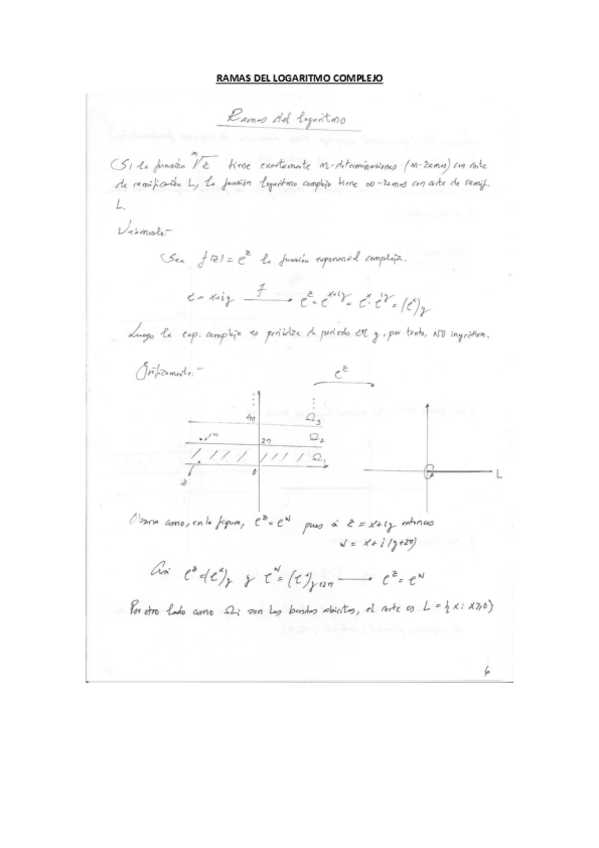 RAMAS DEL LOGARITMO COMPLEJO
Ramas del logaritmo
(Si la función ᵐ√z tiene exactamente m-determinaciones (m-ramas) con corte
de ramificación L, la función logaritmo complejo tiene ∞-ramas con corte de ramif.
L.
Veámoslo:-
Sea f(z) = e^z la función exponencial compleja.
z = x+iy —f→ e^z = e^{x+iy} = e^x · e^{iy} = (e^x)_y
Luego la exp. compleja es periódica de periodo y, por tanto, NO inyectiva.
Gráficamente:-
e^z
4π Ω3
w 2π Ω2
Ω1
z 0
L
Observa como, en la figura, e^z = e^w pues si z = x+iy entonces
w = x+i(y+2π)
Así e^z = (e^x)_y y e^w = (e^x)_{y+2π} → e^z = e^w
Por otro lado como Ωi son las bandas abiertas, el corte es L = {x : x≥0}
6